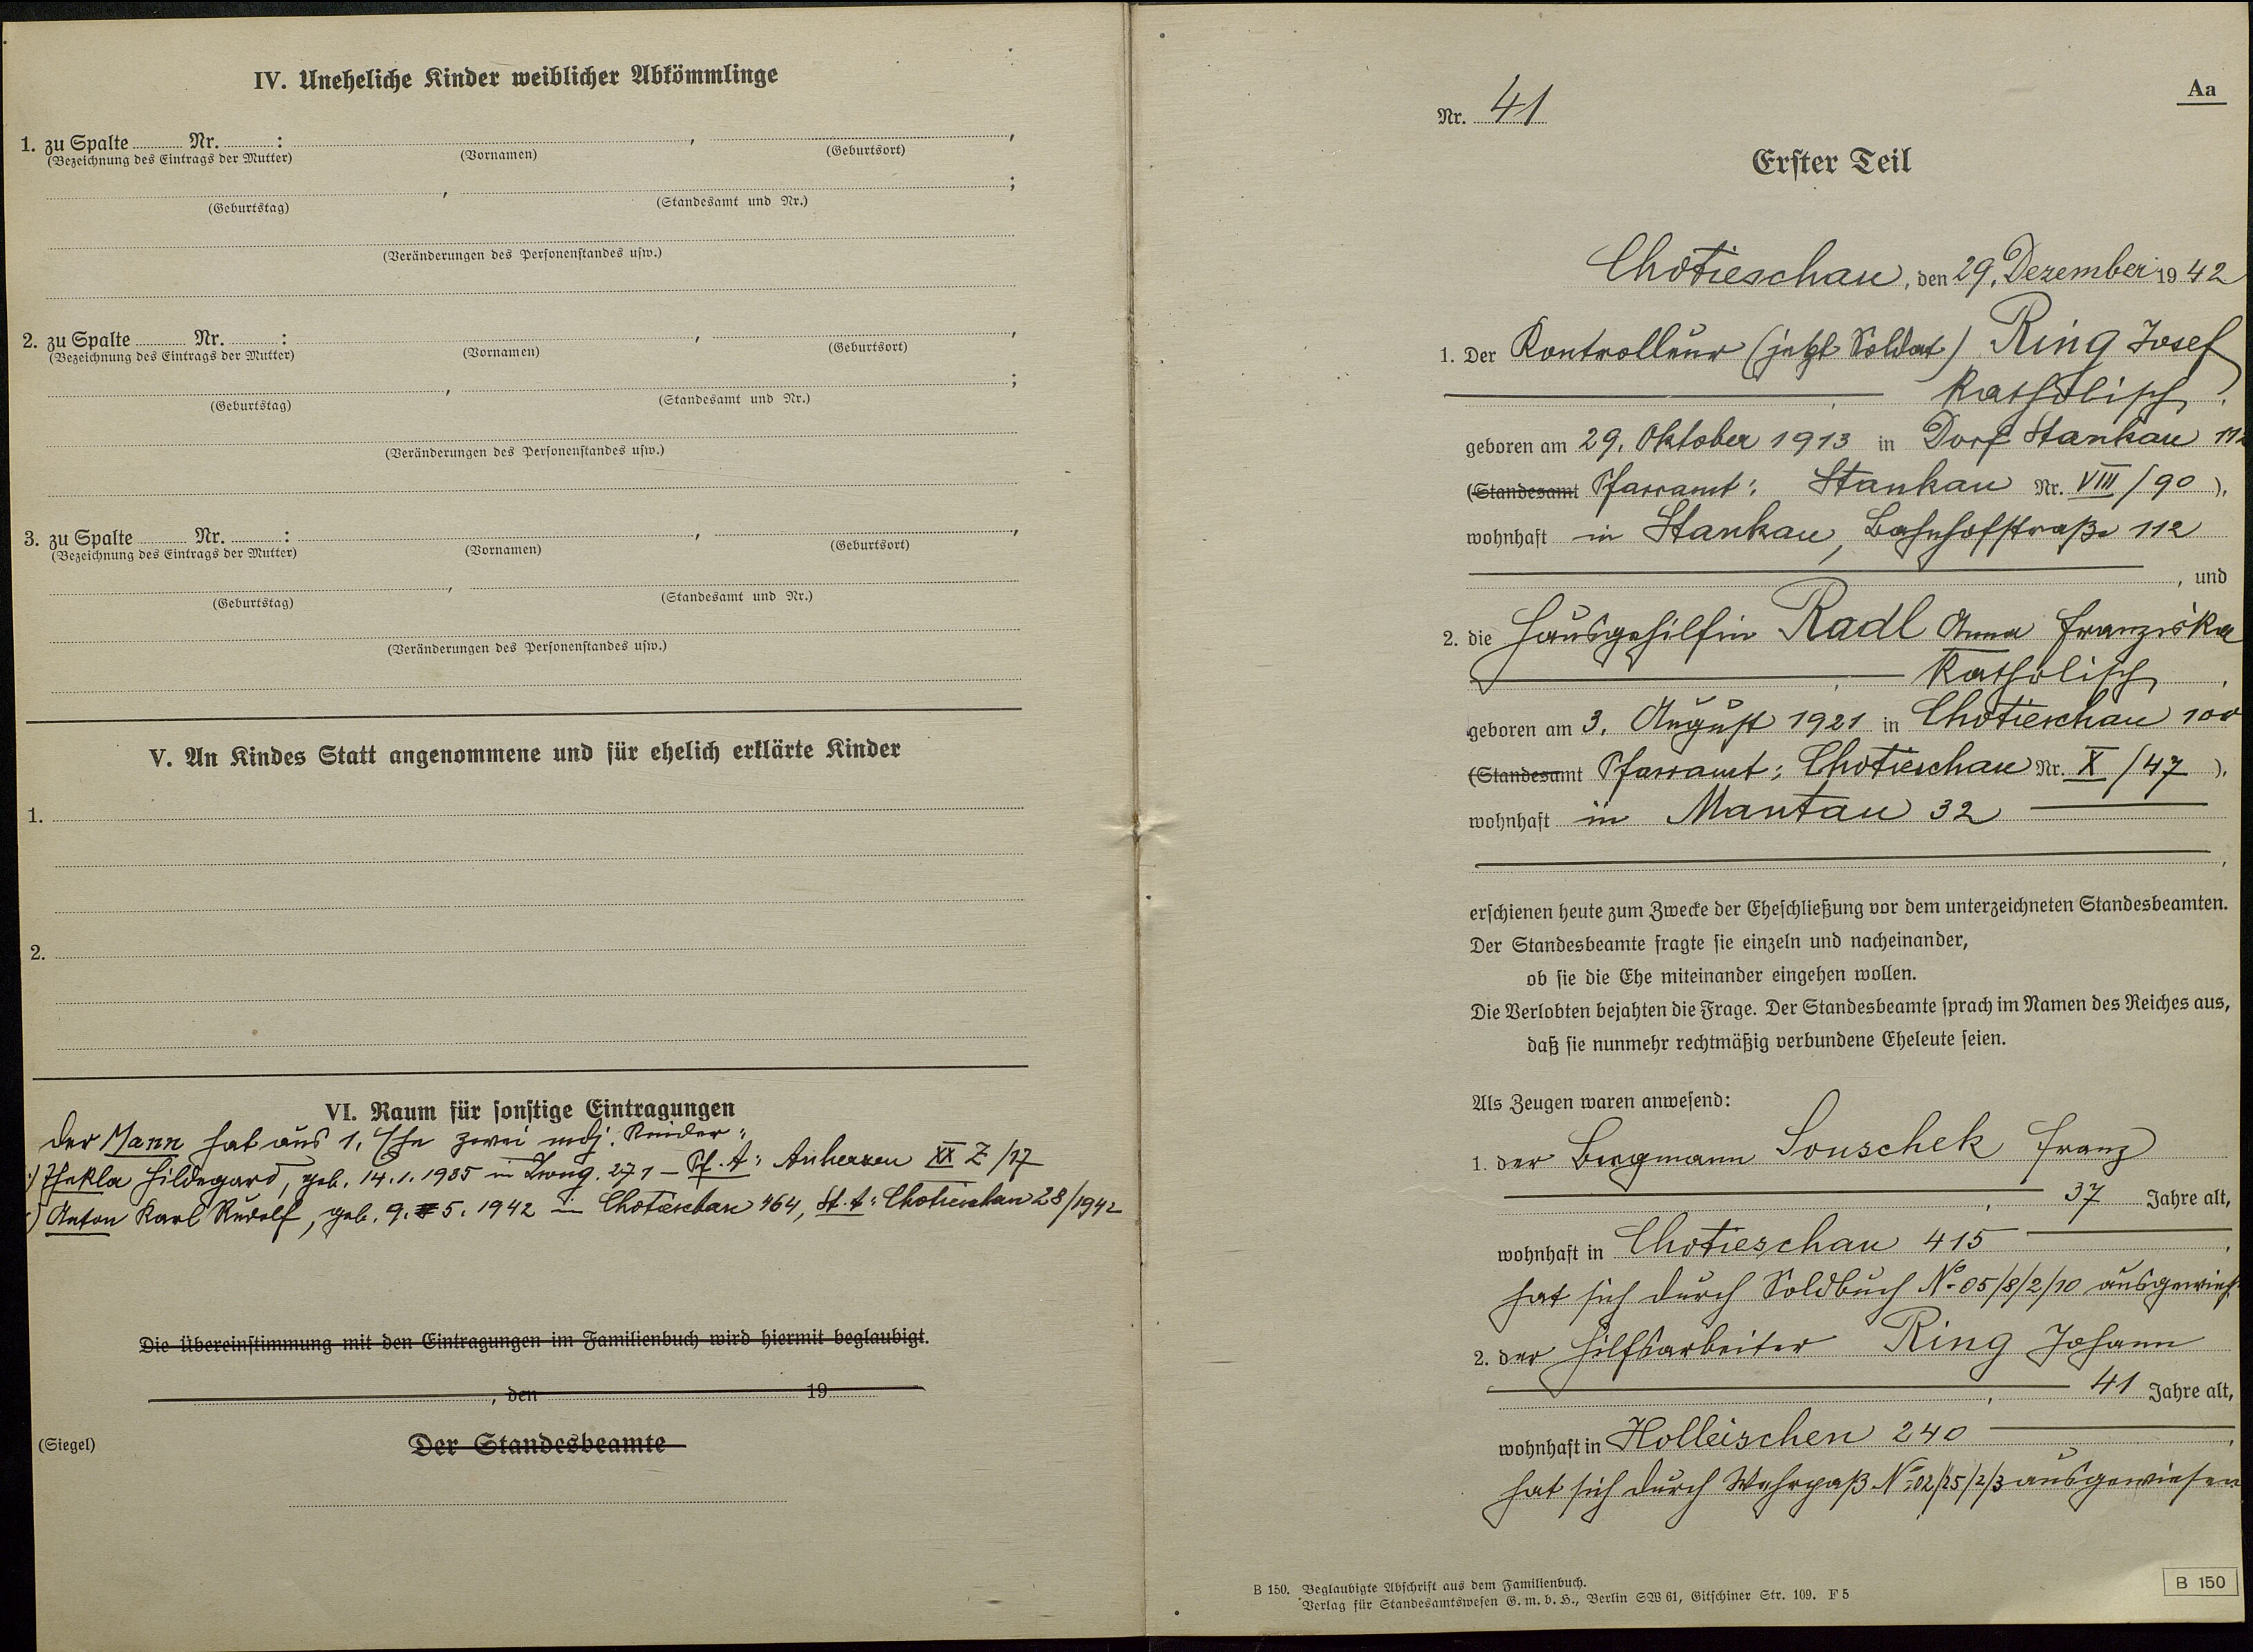 IV. Uneheliche Kinder weiblicher Abkömmlinge
1. zu Spalte Nr. : , ,
(Bezeichnung des Eintrags der Mutter) (Vornamen) (Geburtsort)
, ;
(Geburtstag) (Standesamt und Nr.)
(Veränderungen des Personenstandes usw.)
2. zu Spalte Nr. : , ,
(Bezeichnung des Eintrags der Mutter) (Vornamen) (Geburtsort)
, ;
(Geburtstag) (Standesamt und Nr.)
(Veränderungen des Personenstandes usw.)
3. zu Spalte Nr. : , ,
(Bezeichnung des Eintrags der Mutter) (Vornamen) (Geburtsort)
,
(Geburtstag) (Standesamt und Nr.)
(Veränderungen des Personenstandes usw.)
V. An Kindes Statt angenommene und für ehelich erklärte Kinder
1.
2.
VI. Raum für sonstige Eintragungen
Der Mann hat aus 1. Ehe zwei mdj. Kinder:
Thekla Hildegard, geb. 14.1.1935 in 271 - Pf. A: Auherzen XX Z/17
Anton Karl Rudolf, geb. 9. 5. 1942 in Chotieschau 464, St. A: Chotieschau 28/1942
Die Übereinstimmung mit den Eintragungen im Familienbuch wird hiermit beglaubigt.
, den 19
(Siegel) Der Standesbeamte
Aa
Nr. 41
Erster Teil
Chotieschau, den 29. Dezember 1942
1. Der Kontrolleur (jetzt Soldat) Ring Josef
katholisch,
geboren am 29. Oktober 1913 in Dorf Stankau 112
(Standesamt Pfarramt: Stankau Nr. VIII/90),
wohnhaft in Stankau, Bahnhofstraße 112
, und
2. die Hausgehilfin Radl Anna Franziska
katholisch,
geboren am 3. August 1921 in Chotieschau 100
(Standesamt Pfarramt: Chotieschau Nr. X/47),
wohnhaft in Mantau 32
,
erschienen heute zum Zwecke der Eheschließung vor dem unterzeichneten Standesbeamten.
Der Standesbeamte fragte sie einzeln und nacheinander,
ob sie die Ehe miteinander eingehen wollen.
Die Verlobten bejahten die Frage. Der Standesbeamte sprach im Namen des Reiches aus,
daß sie nunmehr rechtmäßig verbundene Eheleute seien.
Als Zeugen waren anwesend:
1. der Bergmann Souschek Franz
, 37 Jahre alt,
wohnhaft in Chotieschau 415,
hat sich durch Soldbuch No 05/8/2/10
2. der Hilfsarbeiter Ring Johann
, 41 Jahre alt,
wohnhaft in Holleischen 240,
hat sich durch Wehrpaß No 02/25/2/3 ausgewiesen
B 150. Beglaubigte Abschrift aus dem Familienbuch.
Verlag für Standesamtswesen G. m. b. H., Berlin SW 61, Gitschiner Str. 109. F 5
B 150